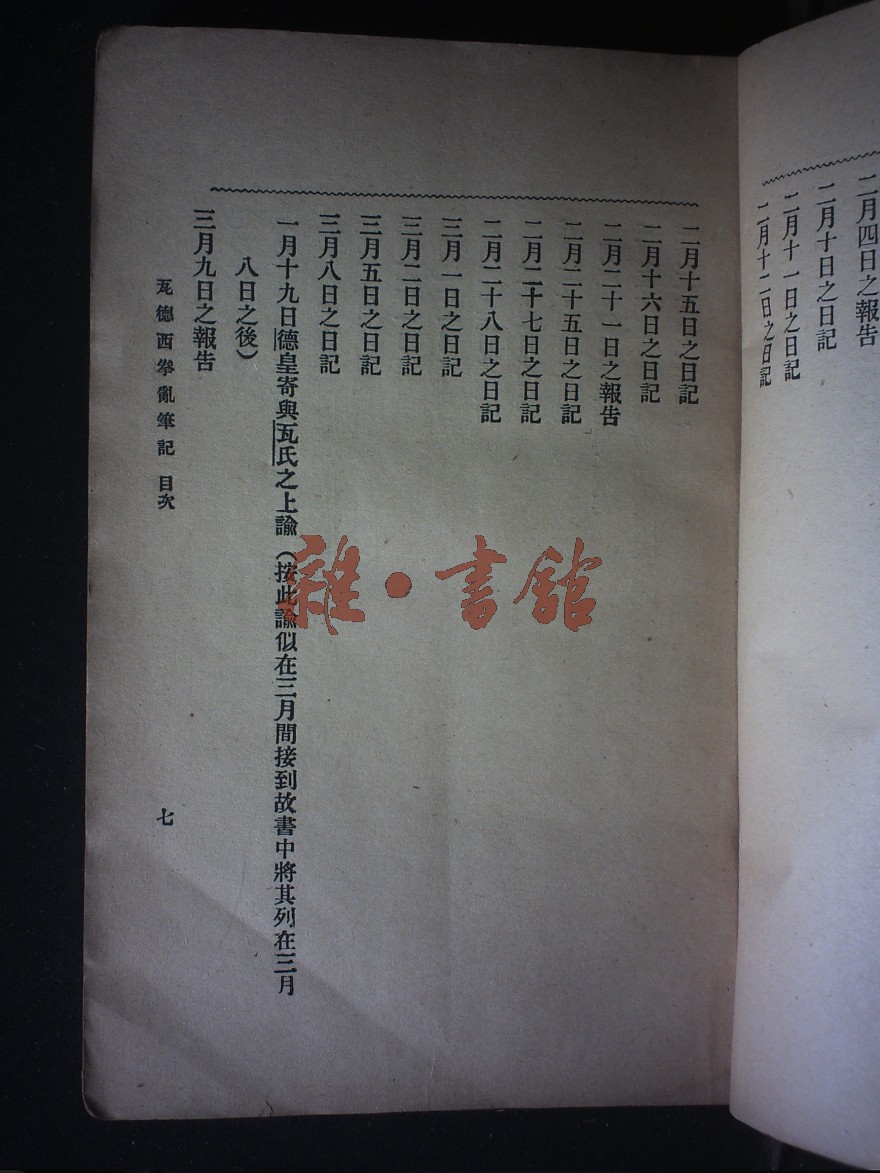 二月四日之報告
二月十日之日記
二月十一日之日記
二月十二日之日記
二月十五日之日記
二月十六日之日記
二月二十一日之報告
二月二十五日之日記
二月二十七日之日記
二月二十八日之日記
三月一日之日記
三月二日之日記
三月五日之日記
三月八日之日記
一月十九日德皇寄與瓦氏之上諭（按此諭似在三月間接到故書中將其列在三月
八日之後）
三月九日之報告
瓦德西拳亂筆記 目次
七
雜·書館